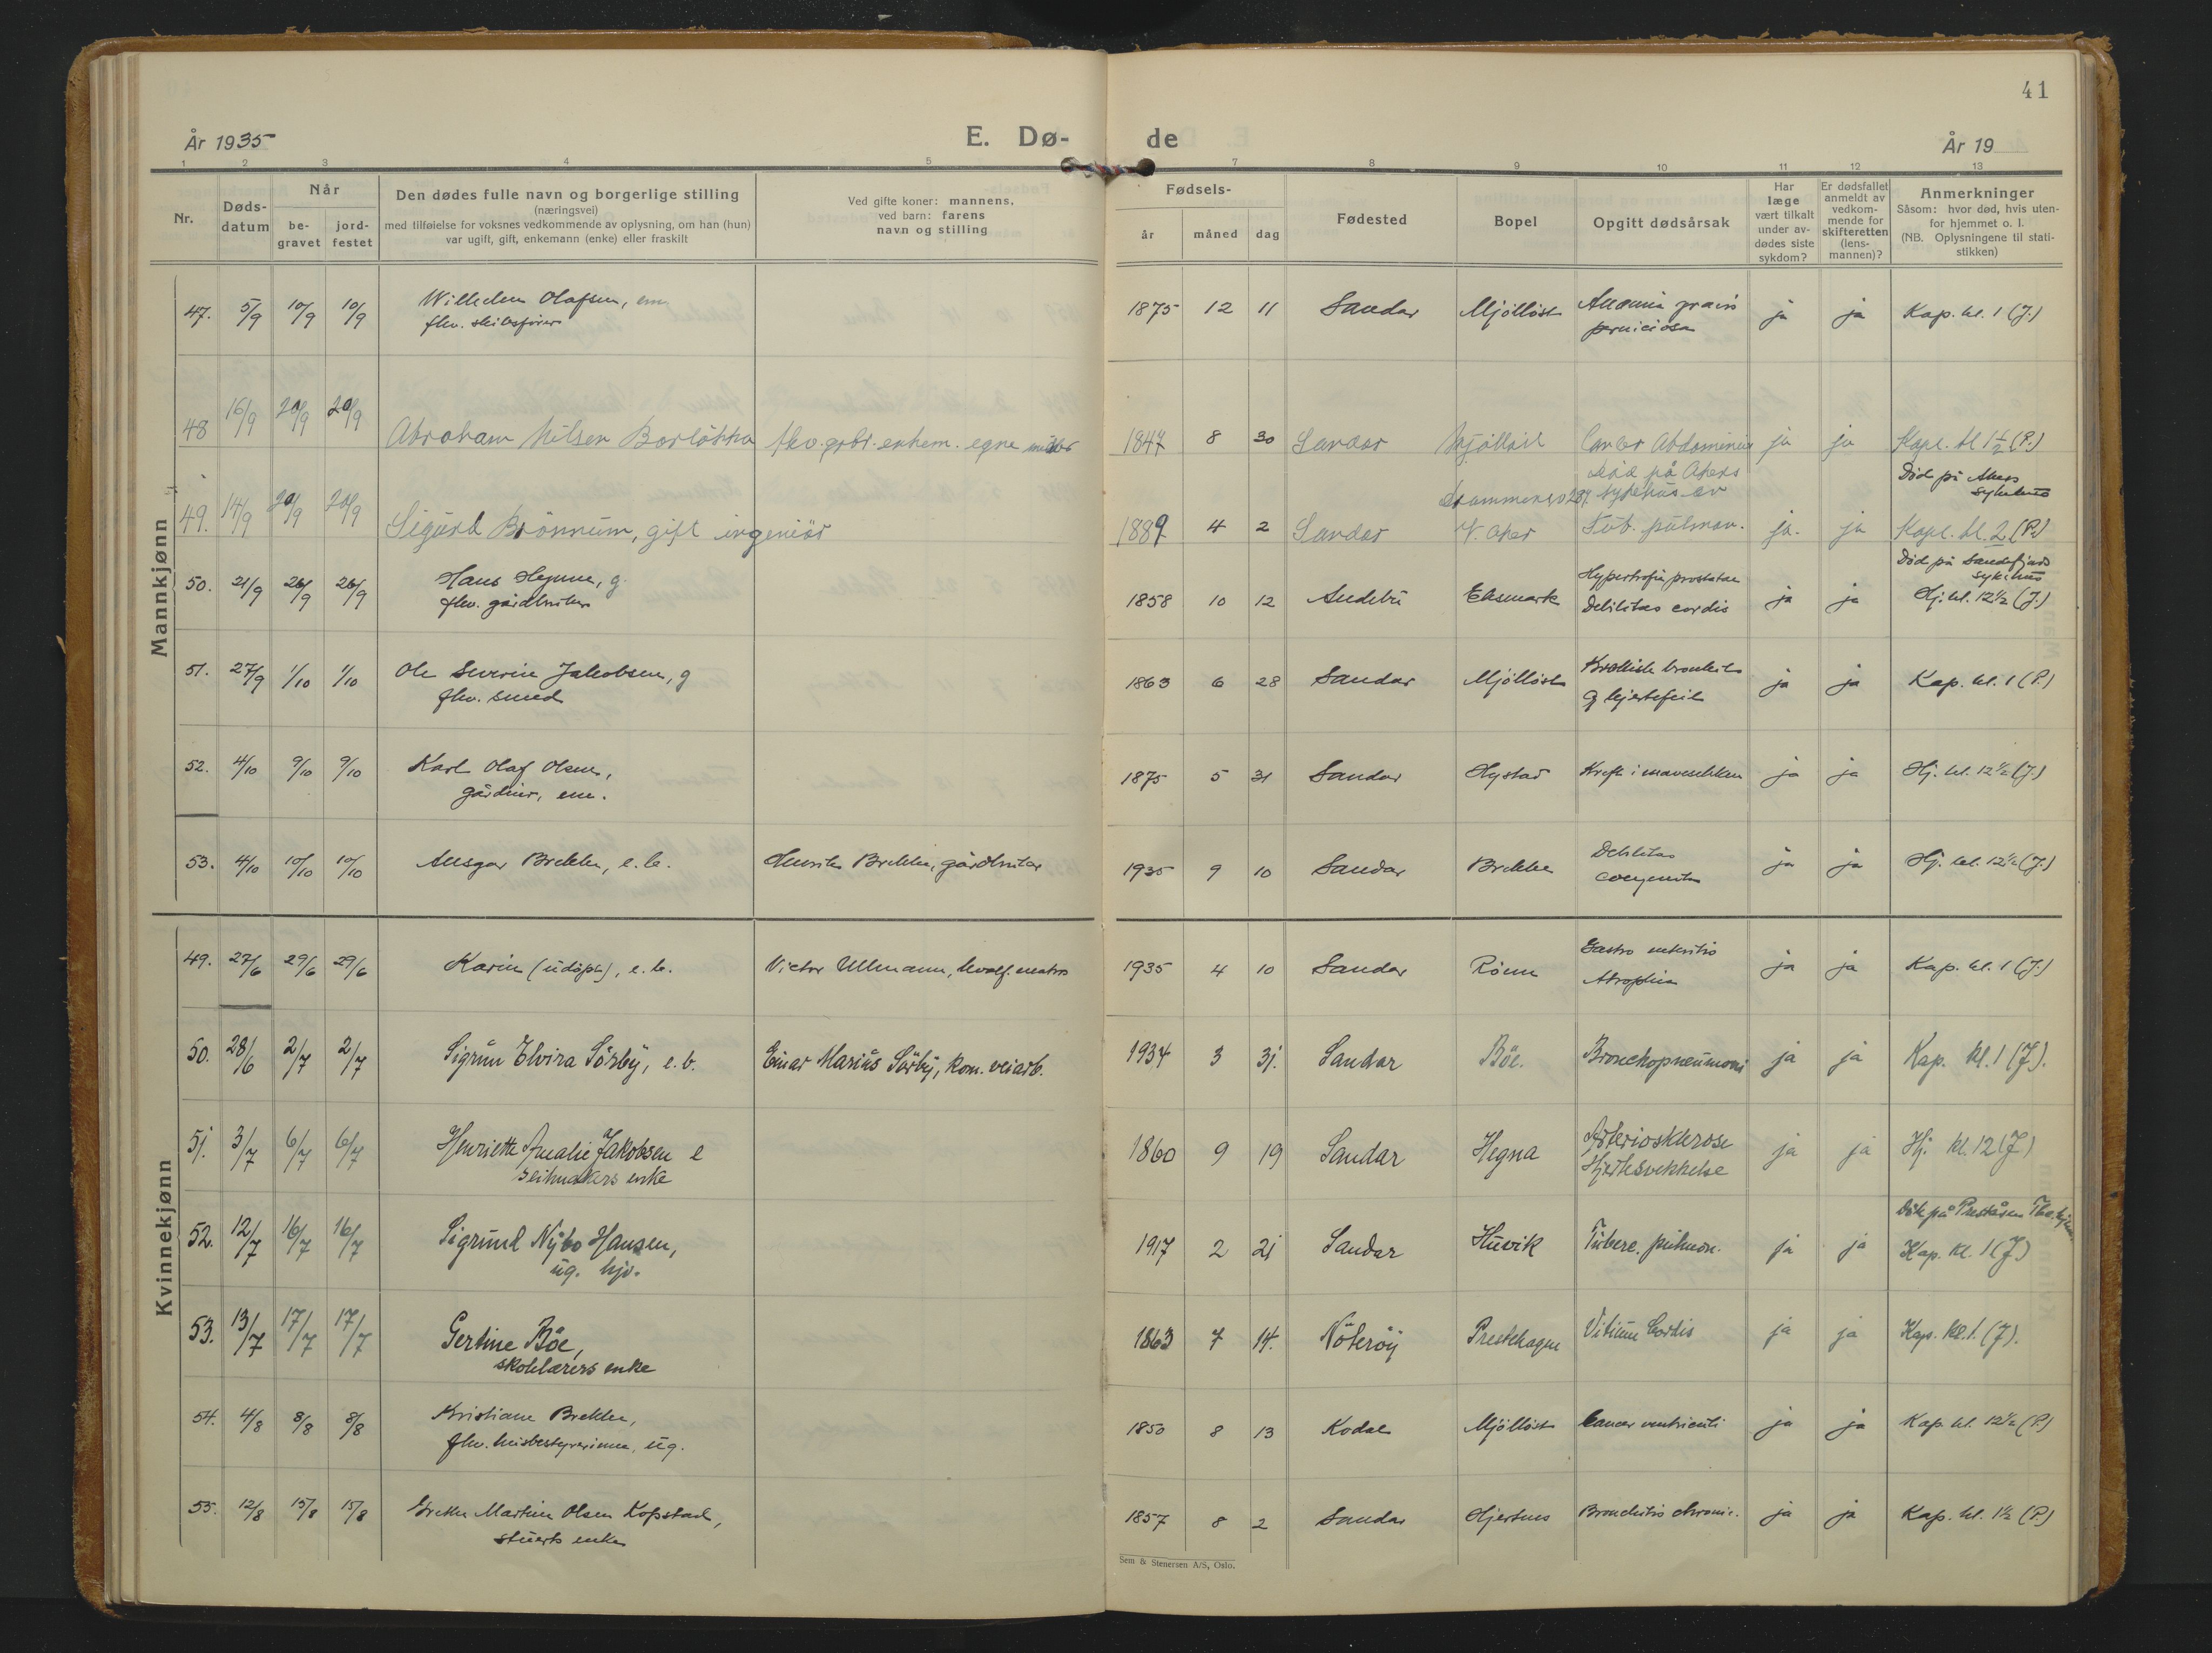 41
År 1935
E. Dø-
de
År 19
1 2 3 4 5 7 8 9 10 11 12 13
Nr.
Døds-
datum
Når
be-
gravet
jord-
festet
Den dødes fulle navn og borgerlige stilling
(næringsvei)
med tilføielse for voksnes vedkommende av oplysning, om han (hun)
var ugift, gift, enkemann (enke) eller fraskilt
Ved gifte koner: mannens.
ved barn: farens
navn og stilling
Fødsels-
år
måned
dag
Fødested
Bopel
Opgitt dødsårsak
Har
læge
vært tilkalt
under av-
dødes siste
sykdom?
Er dødsfallet
anmeldt av
vedkom-
mende for
skifteretten
(lens-
mannen)?
Anmerkninger
Såsom: hvor død, hvis uten-
for hjemmet o. l.
(NB. Oplysningene til stati-
stikken)
Mannkjønn
47. 5/9 10/9 10/9 Wilhelm Olafsen, em. 1875 12 11 Sandar Mjølløst Anæmia gravis ja ja Kap. kl. 1 (J.)
fhv. skibsfører
perniciosa
48 16/9 20/9 20/9 Abraham Nilsen Borløkka fhv. grbr. enkem. egne midler 1847 8 30 Sandar Mjølløst Cancer Abdominis ja ja Kapl. kl 1½ (P.)
Død på Akers
sykehus av
Drammensv 287.
Død på Akers
sykehus
49. 14/9 20/9 20/9 Sigurd Brönnum, gift ingeniör 1889 4 2 Sandar V. Aker Tub. pulmon. ja. ja Kapl. kl. 2 (P.)
Død på Sandefjord
sykehus
50. 21/9 26/9 26/9 Hans Hynne, g. 1858 10 12 Andebu Eksmark Hypertrofia prostatae ja ja Hj. kl. 12½ (J.)
fhv. gårdbruker
Debilitas cordis
51. 27/9 1/10 1/10 Ole Severin Jakobsen, g 1863 6 28 Sandar Mjølløst Kronisk bronkit ja ja Kap. kl. 1 (P.)
fhv. smed
og hjertefeil
52. 4/10 9/10 9/10 Karl Olaf Olsen, 1875 5 31 Sandar Hystad Kreft i mavesekken ja ja Hj. kl. 12½ (J.)
gårdeier, em.
53. 4/10 10/10 10/10 Ansgar Brekke, e. b. Henrik Brekke, gårdbruker 1935 9 10 Sandar Brekke Debilitas ja ja Hj. kl. 12½ (J.)
congenita
Kvinnekjønn
49. 27/6 29/6 29/6 Karin (udöpt), e. b. Victor Ullmann, hvalf. matros 1935 4 10 Sandar Rönn Gastro enteritis ja ja Kap. kl. 1 (J.)
Atrophia
50. 28/6 2/7 2/7 Sigrun Elvira Sörby, e. b. Einar Marius Sörby, kom. veiarb. 1934 3 31. Sandar Böe. Bronchopneumoni ja ja Kap. kl. 1 (J).
51. 3/7 6/7 6/7 Henriette Amalie Jakobsen e 1860 9 19 Sandar Hegna Arteriosklerose ja ja Hj. kl. 12 (J)
seilmakers enke
Hjertesvekkelse
Död på Preståsen Tbc. hjem
52. 12/7 16/7 16/7 Sigrund Nybo Hansen, 1917 2 21 Sandar Husvik Tuberc. pulmon. ja ja Kap. kl. 1 (J)
ug. hjv.
53. 13/7 17/7 17/7 Gertine Böe, 1863 7 14. Nöteröy Prestehagen Vitium Cordis ja ja Kap. kl. 1. (J).
skolelærers enke
54. 4/8 8/8 8/8 Kristiane Brekke, 1850 8 13 Kodal Mjølløst Cancer ventriculi ja ja Kap. kl. 12½ (P.)
fhv. husbestyrerinne, ug.
55. 12/8 15/8 15/8 Grethe Martine Olsen Kopstad, 1857 8 2 Sandar Hjertnes Bronchitis chronic. ja ja Kap. kl. 1½ (P.)
stuerts enke
Sem & Stenersen A/S, Oslo.